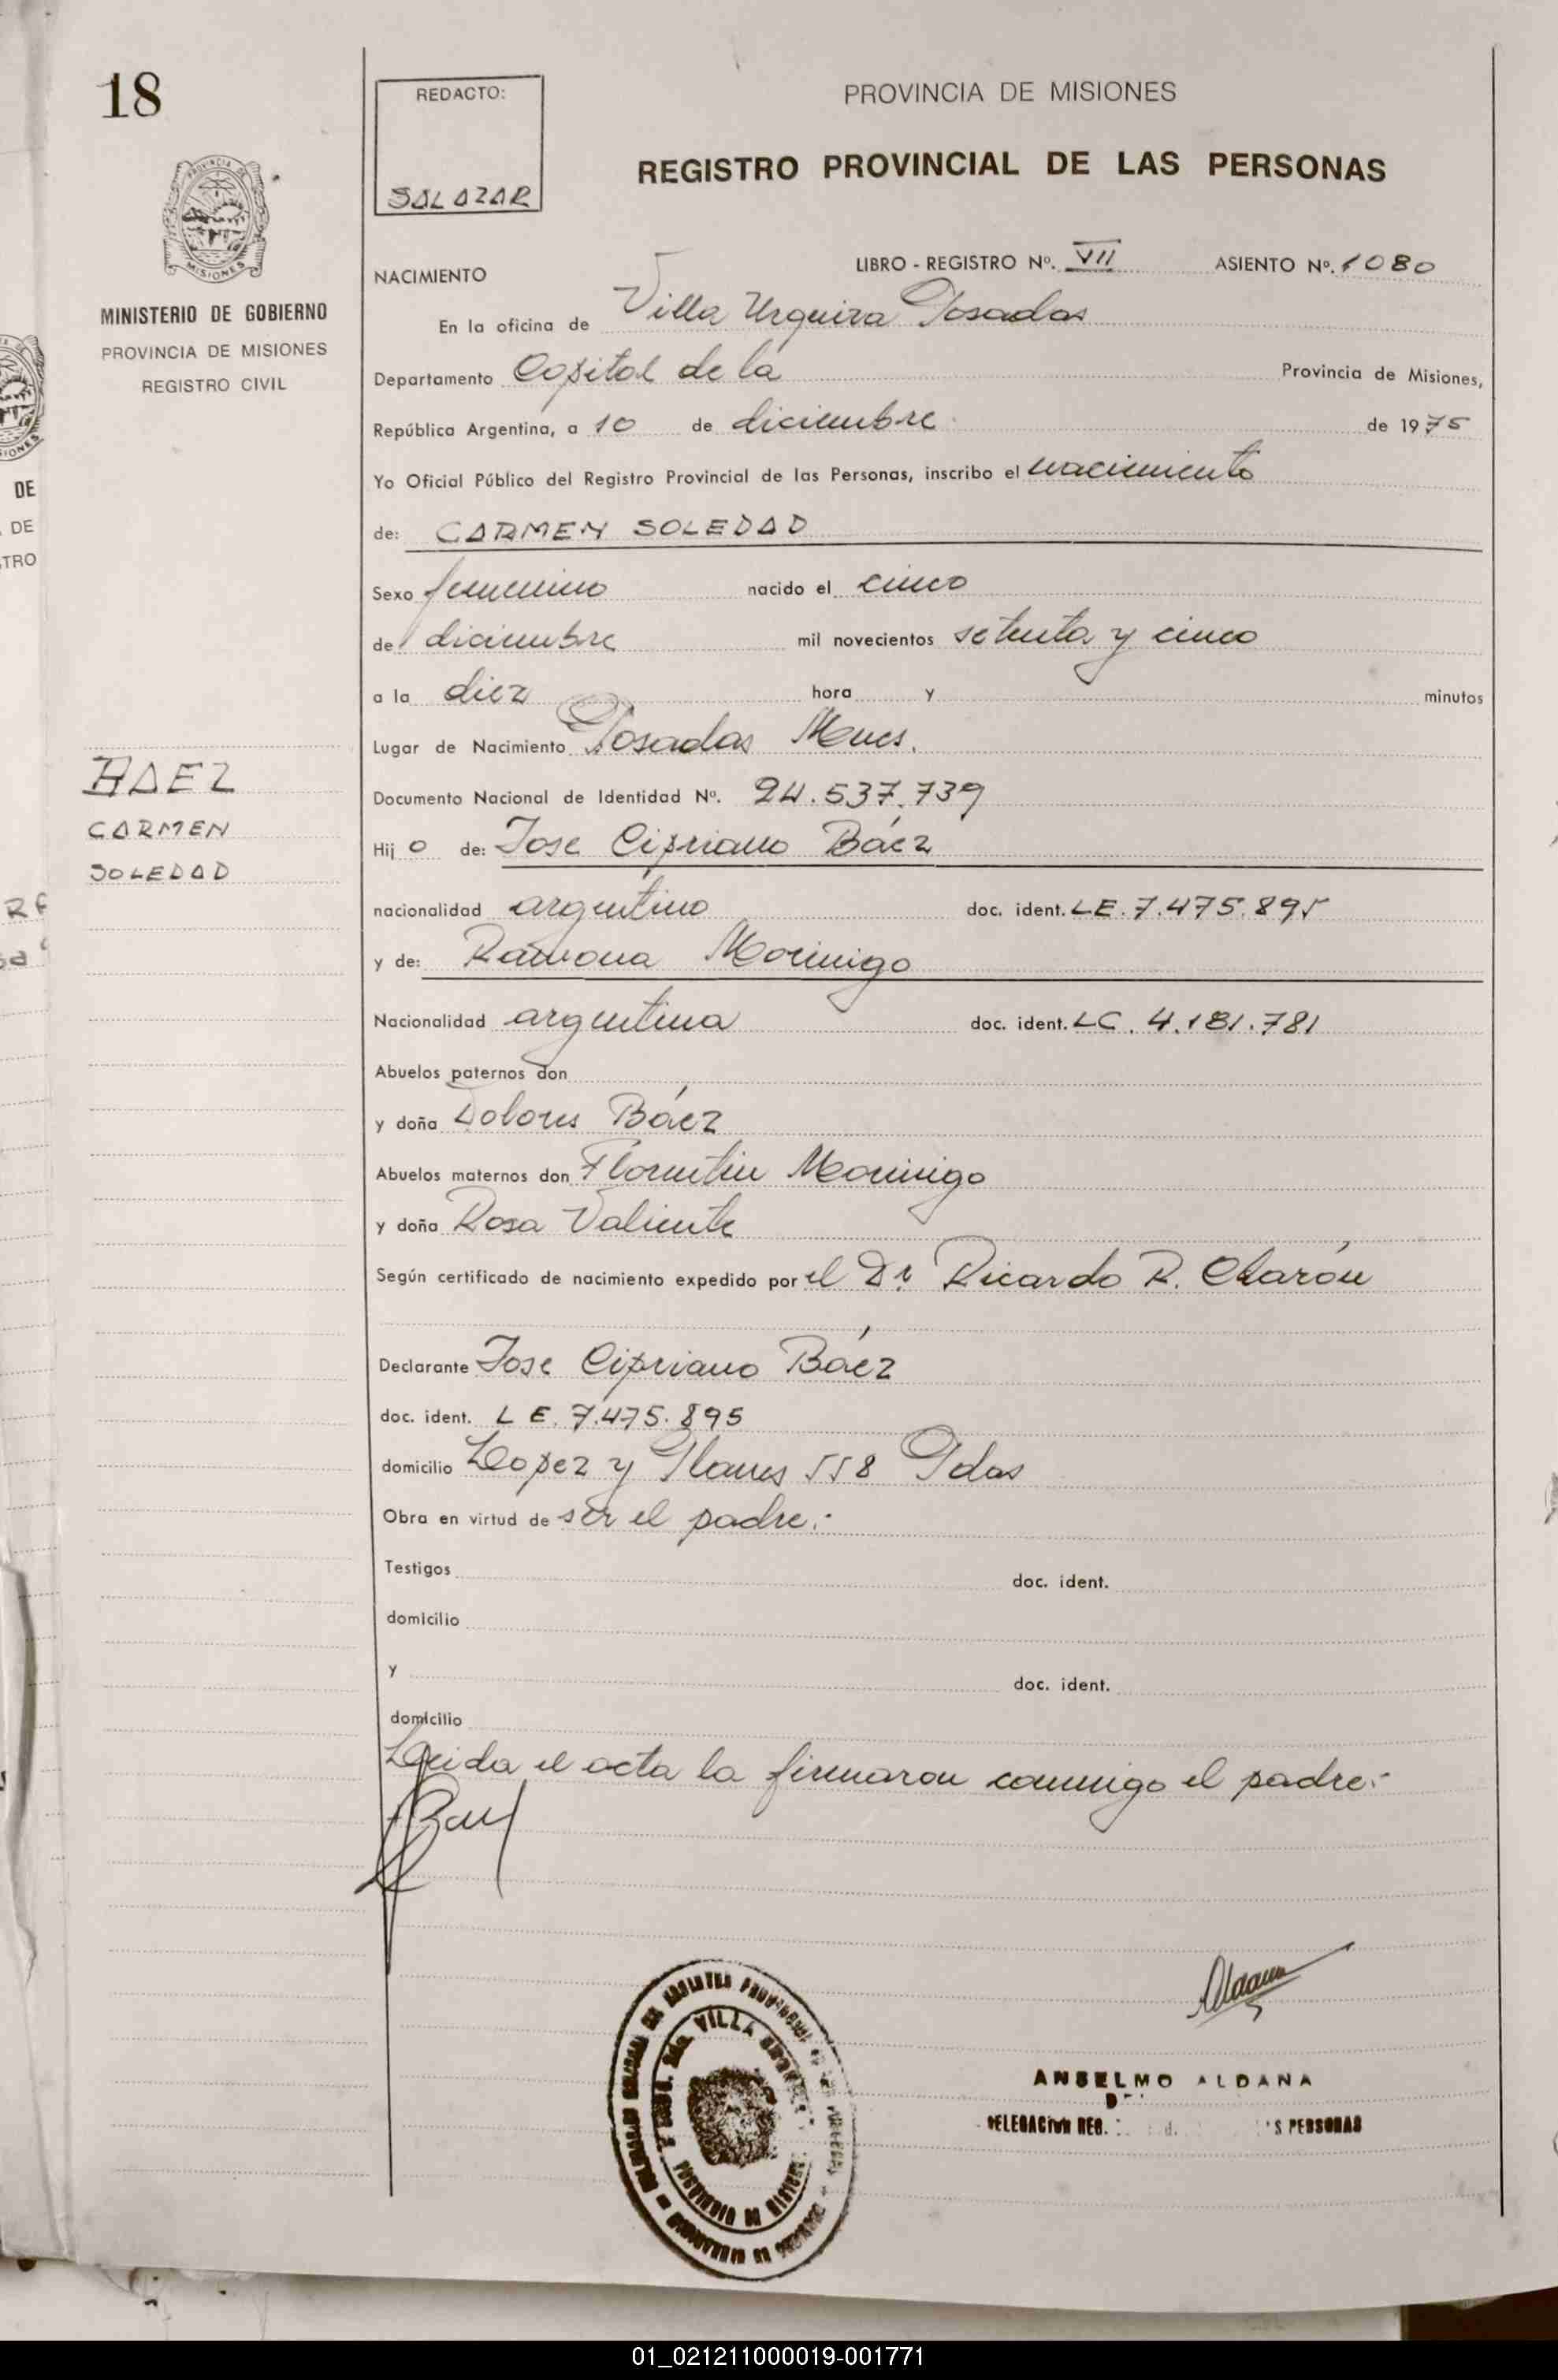 18
REDACTO:
SALAZAR
PROVINCIA DE MISIONES
REGISTRO PROVINCIAL DE LAS PERSONAS
MISIONES
MINISTERIO DE GOBIERNO
PROVINCIA DE MISIONES
REGISTRO CIVIL
DE
DE
TRO
BAEZ
CARMEN
SOLEDAD
NACIMIENTO
LIBRO - REGISTRO Nº. VII ASIENTO Nº. 1080
En la oficina de Villa Urquiza Posadas
Departamento Capital de la Provincia de Misiones,
República Argentina, a 10 de diciembre de 1975
Yo Oficial Público del Registro Provincial de las Personas, inscribo el nacimiento
de: CARMEN SOLEDAD
Sexo femenino nacido el cinco
de diciembre mil novecientos setenta y cinco
a la diez hora y minutos
Lugar de Nacimiento Posadas Mnes.
Documento Nacional de Identidad Nº. 24.537.739
Hij o de: Jose Cipriano Báez
nacionalidad argentino doc. ident. LE. 7.475.895
y de: Ramona Morinigo
Nacionalidad argentina doc. ident. LC. 4.181.781
Abuelos paternos don
y doña Dolores Báez
Abuelos maternos don Florentin Morinigo
y doña Rosa Valiente
Según certificado de nacimiento expedido por el Dr. Ricardo R.
Declarante Jose Cipriano Báez
doc. ident. L E. 7.475.895
domicilio Lopez y Planes 558 Pdas
Obra en virtud de ser el padre.-
Testigos doc. ident.
domicilio
y doc. ident.
domicilio
Leida el acta la firmaron conmigo el padre.-
ANSELMO ALDANA
DELEGACION REG. S PERSONAS
VILLA
PROVINCIA DE MISIONES
01_021211000019-001771